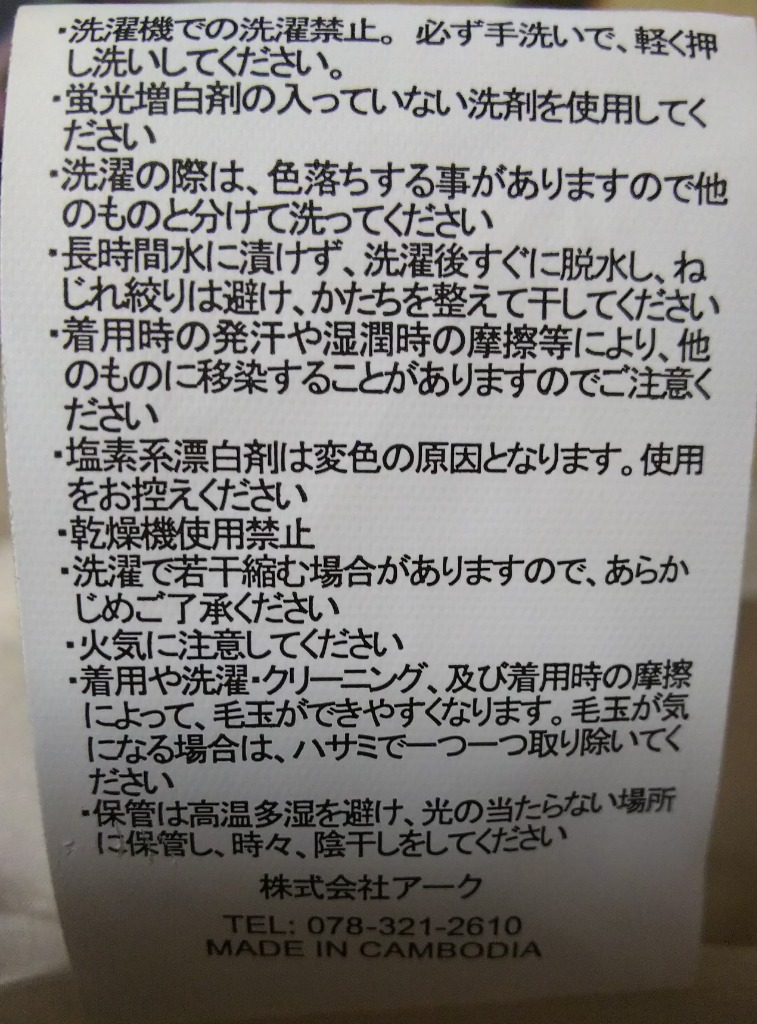 ・洗濯機での洗濯禁止。 必ず手洗いで、軽く押
し洗いしてください。
・蛍光増白剤の入っていない洗剤を使用してく
ださい
・洗濯の際は、色落ちする事がありますので他
のものと分けて洗ってください
・長時間水に漬けず、洗濯後すぐに脱水し、ね
じれ絞りは避け、かたちを整えて干してください
・着用時の発汗や湿潤時の摩擦等により、他
のものに移染することがありますのでご注意く
ださい
・塩素系漂白剤は変色の原因となります。使用
をお控えください
・乾燥機使用禁止
・洗濯で若干縮む場合がありますので、あらか
じめご了承ください
・火気に注意してください
・着用や洗濯・クリーニング、及び着用時の摩擦
によって、毛玉ができやすくなります。毛玉が気
になる場合は、ハサミで一つ一つ取り除いてく
ださい
・保管は高温多湿を避け、光の当たらない場所
に保管し、時々、陰干しをしてください
株式会社アーク
TEL: 078-321-2610
MADE IN CAMBODIA